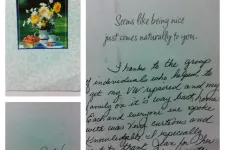 Seems like being nice
just comes naturally to you.
Thanks to the group
of individuals who helped to
get my VW repaired and my
family on it's way back home.
Each and everyone we spoke
with was very courteous and
knowledgable. I especially
to thank